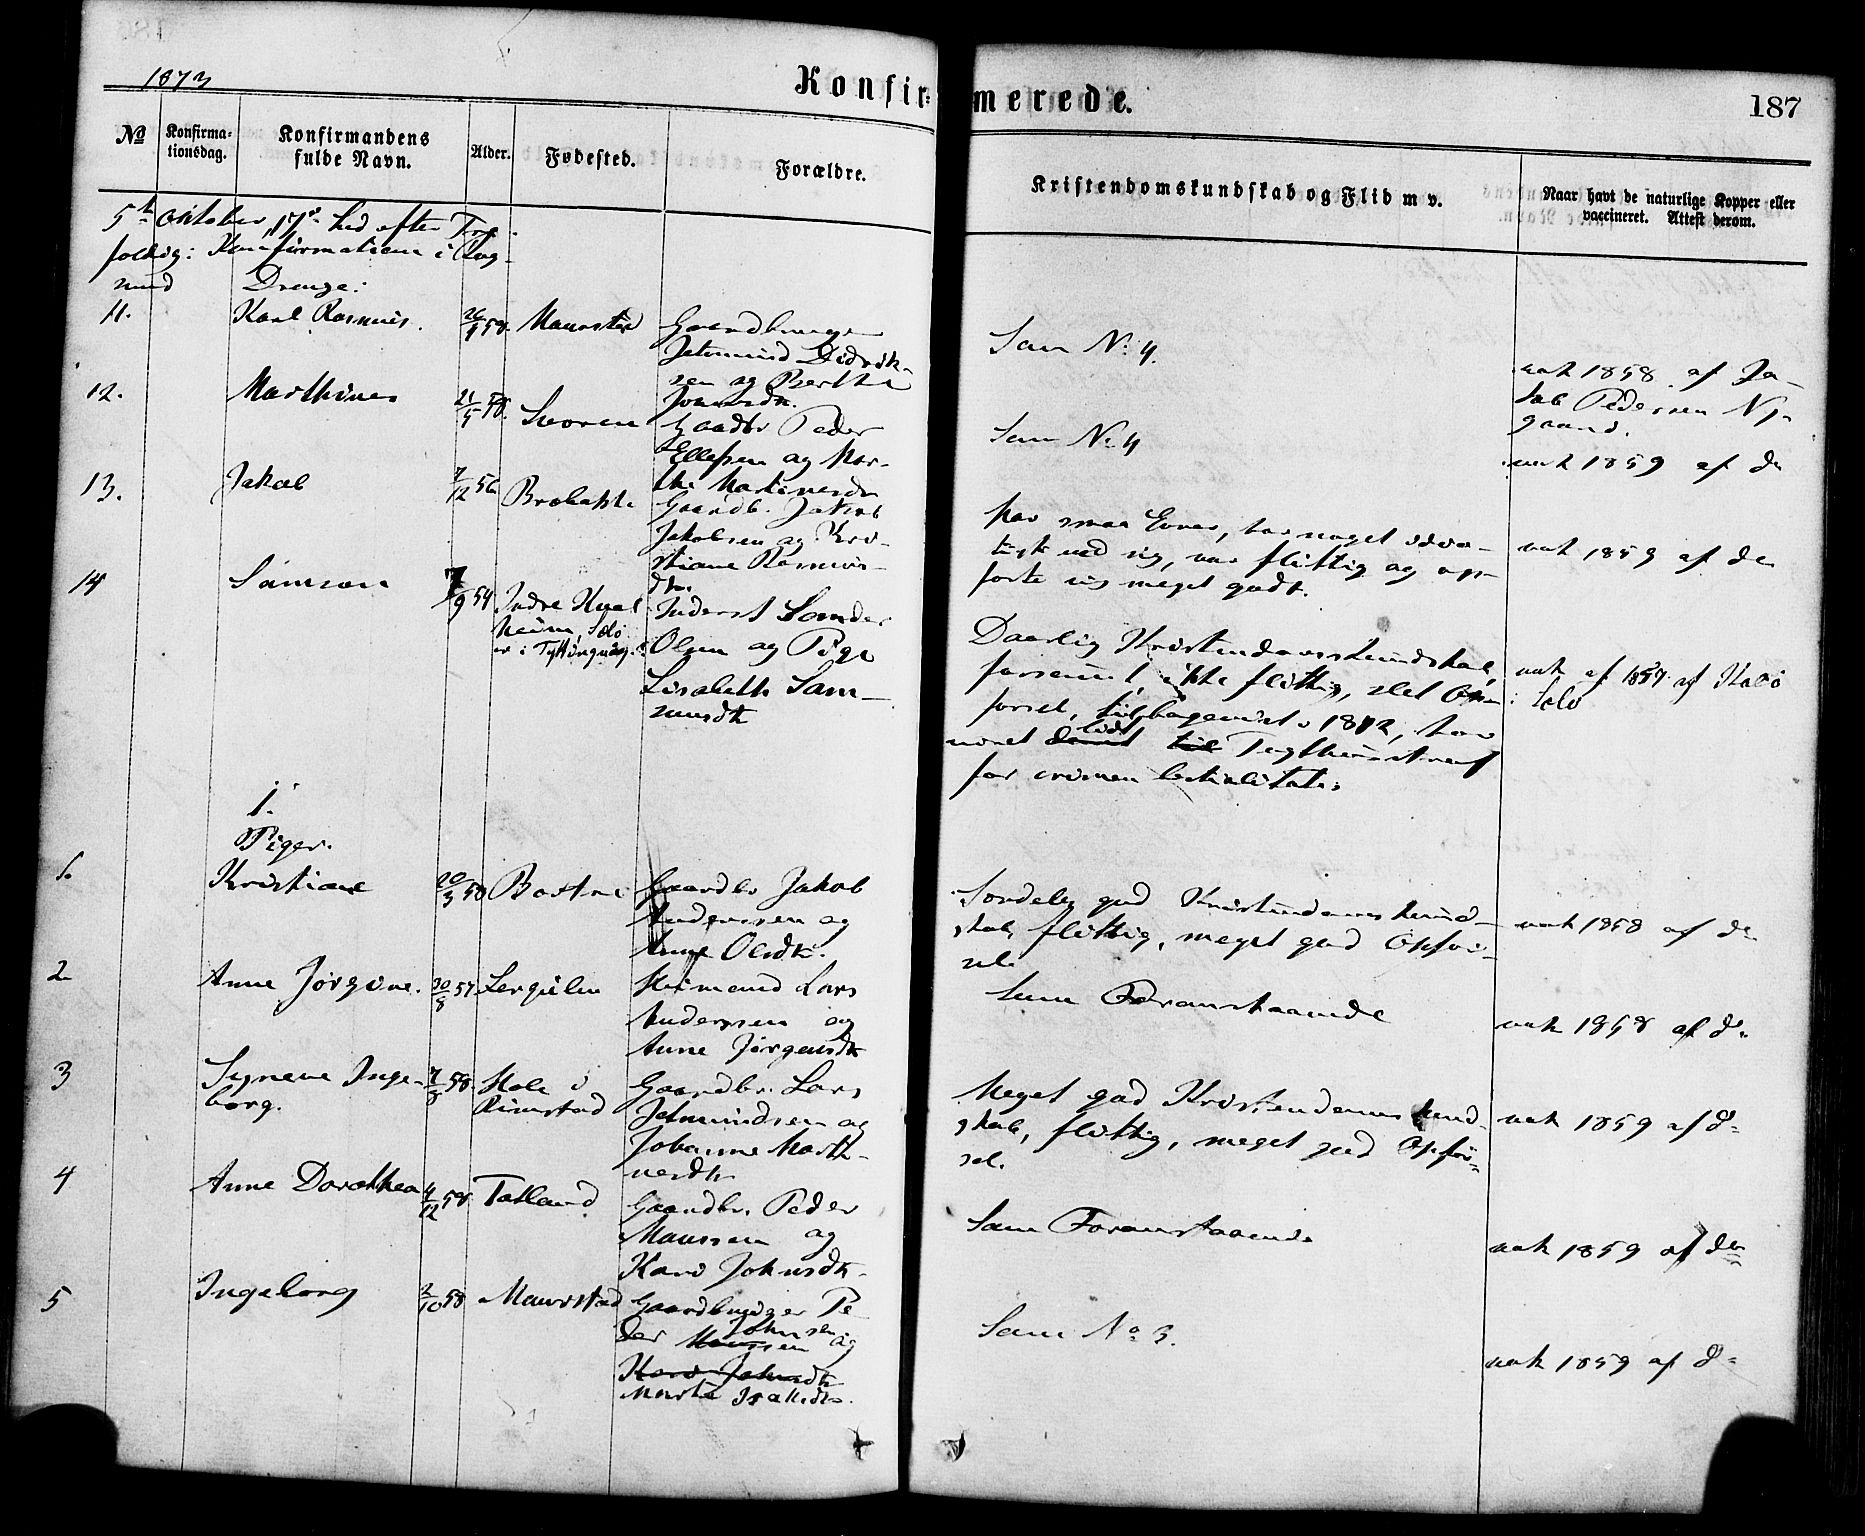 1873
Konfirmerede.
187
No
Konfirmationsdag.
Konfirmandens fulde Navn.
Alder.
Fødested.
Forældre.
Kristendomskundskab og Flid m v.
Naar havt de naturlige Kopper eller vaccineret. Attest derom.
5te Oktober, 17de Sød efter Tre-
foldig: Konfirmationen i Vaag-
Drenge:
11. Karl Rasmus. 26/9 58. Maurstad Gaardbruger
Jetmund Didrik-
sen og Berthe
Sam No 4.
vak 1858 af Ja-
kob Pedersen Ny-
gaard.
12. Marthines 21/5 58. Svoren Gaardbr Peder
Ellefsen og Mar-
the Martinusdr
Som No 4
vak 1859 af do
13. Jakob 7/12 56 Brobakke Gaardb. Jakob
Jakobsen og Kri-
stiane Rasmus-
dtr.
har smaa Evner,
sig, var flittig og op-
førte sig meget godt.
vak 1859 af do
14 Samson 7/9 54 Indre
Selø
Inderst Sander
Olsen og Pige
Lisabeth Sam-
sunsdtr
Daarlig Kristendomskundskab,
forsømt, ikke flittig, slet Op-
førsel, tilbagevist i 1872, har
været lidt Tugthusstraf
for crimen bestialitatis
vak af 1857 af
Selø
Piger.
1. Kristiane 20/3 58 Gaardbr Jakob
Anderssen og
Anne Olsdtr.
Særdeles god Kristendomskund-
skab, flittig, meget god Opfør-
sel
vak 1858 af do
2 Anne Jørgine. 30/8 57 Husmand Lars
Anderssen og
Anne Jørgensdtr
Som Foranstaaende
vak 1858 af do
3 Synneve Inge-
borg. 7/8 58. Hole i
Rimstad Gaardbr. Lars
Jetmundsen og
Johanne Marti-
nesdtr
Meget god Kristendomskund-
skab, flittig, meget god Opfør-
sel.
vak 1859 af do
4 Anne Dorothea 4/12 58 Totland Gaardbr. Peder
Maursen og
Kari Johnsdtr.
Som Foranstaaende
vak 1859 af do
5 Ingeborg 2/10 58 Maurstad Gaardbruger Pe
der Johnsen og
Kari Johnsdtr
Marte
Som No 3.
vak 1859 af do